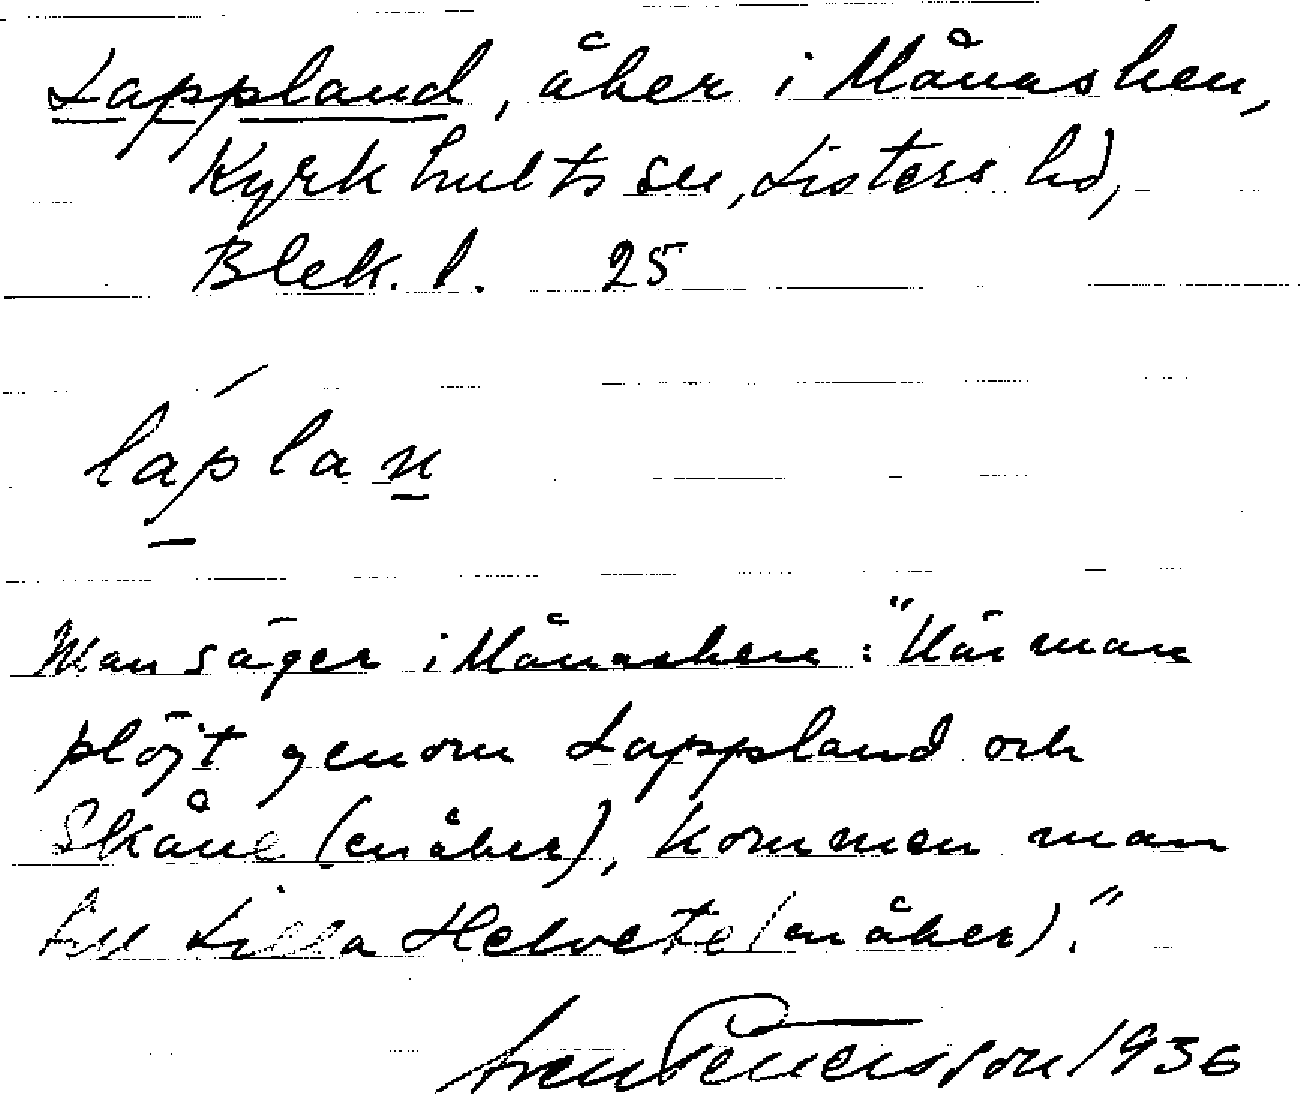 Lappland, åker i Månasken,
Kyrkhults sn, Listers hd,
Blek. l. 25
láplan
Man säger i Månasken: "När man
plöjt genom Lappland och
Skåne (en åker), kommer man
till Lilla Helvete (en åker)."
Sven Petersson 1936